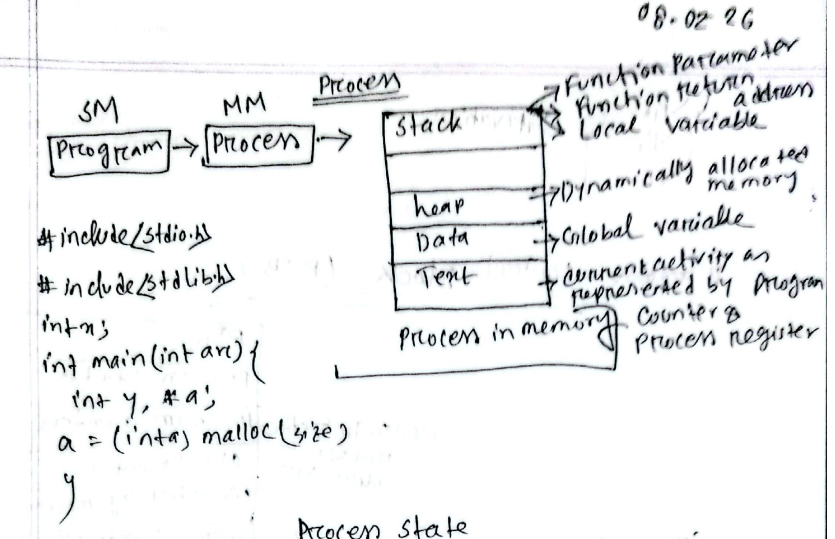 08.02 26
Process
SM
MM
Program
Process
Stack
heap
Data
Text
Function Parameter
Function return address
Local variable
Dynamically allocated
memory
Global variable
current activity as
represented by Program
Counter &
Process register
Process in memory
#include<stdio.h>
#include<stdlib.h>
int x;
int main(int arc) {
int y, *a;
a = (int*) malloc(size)
}
Process state